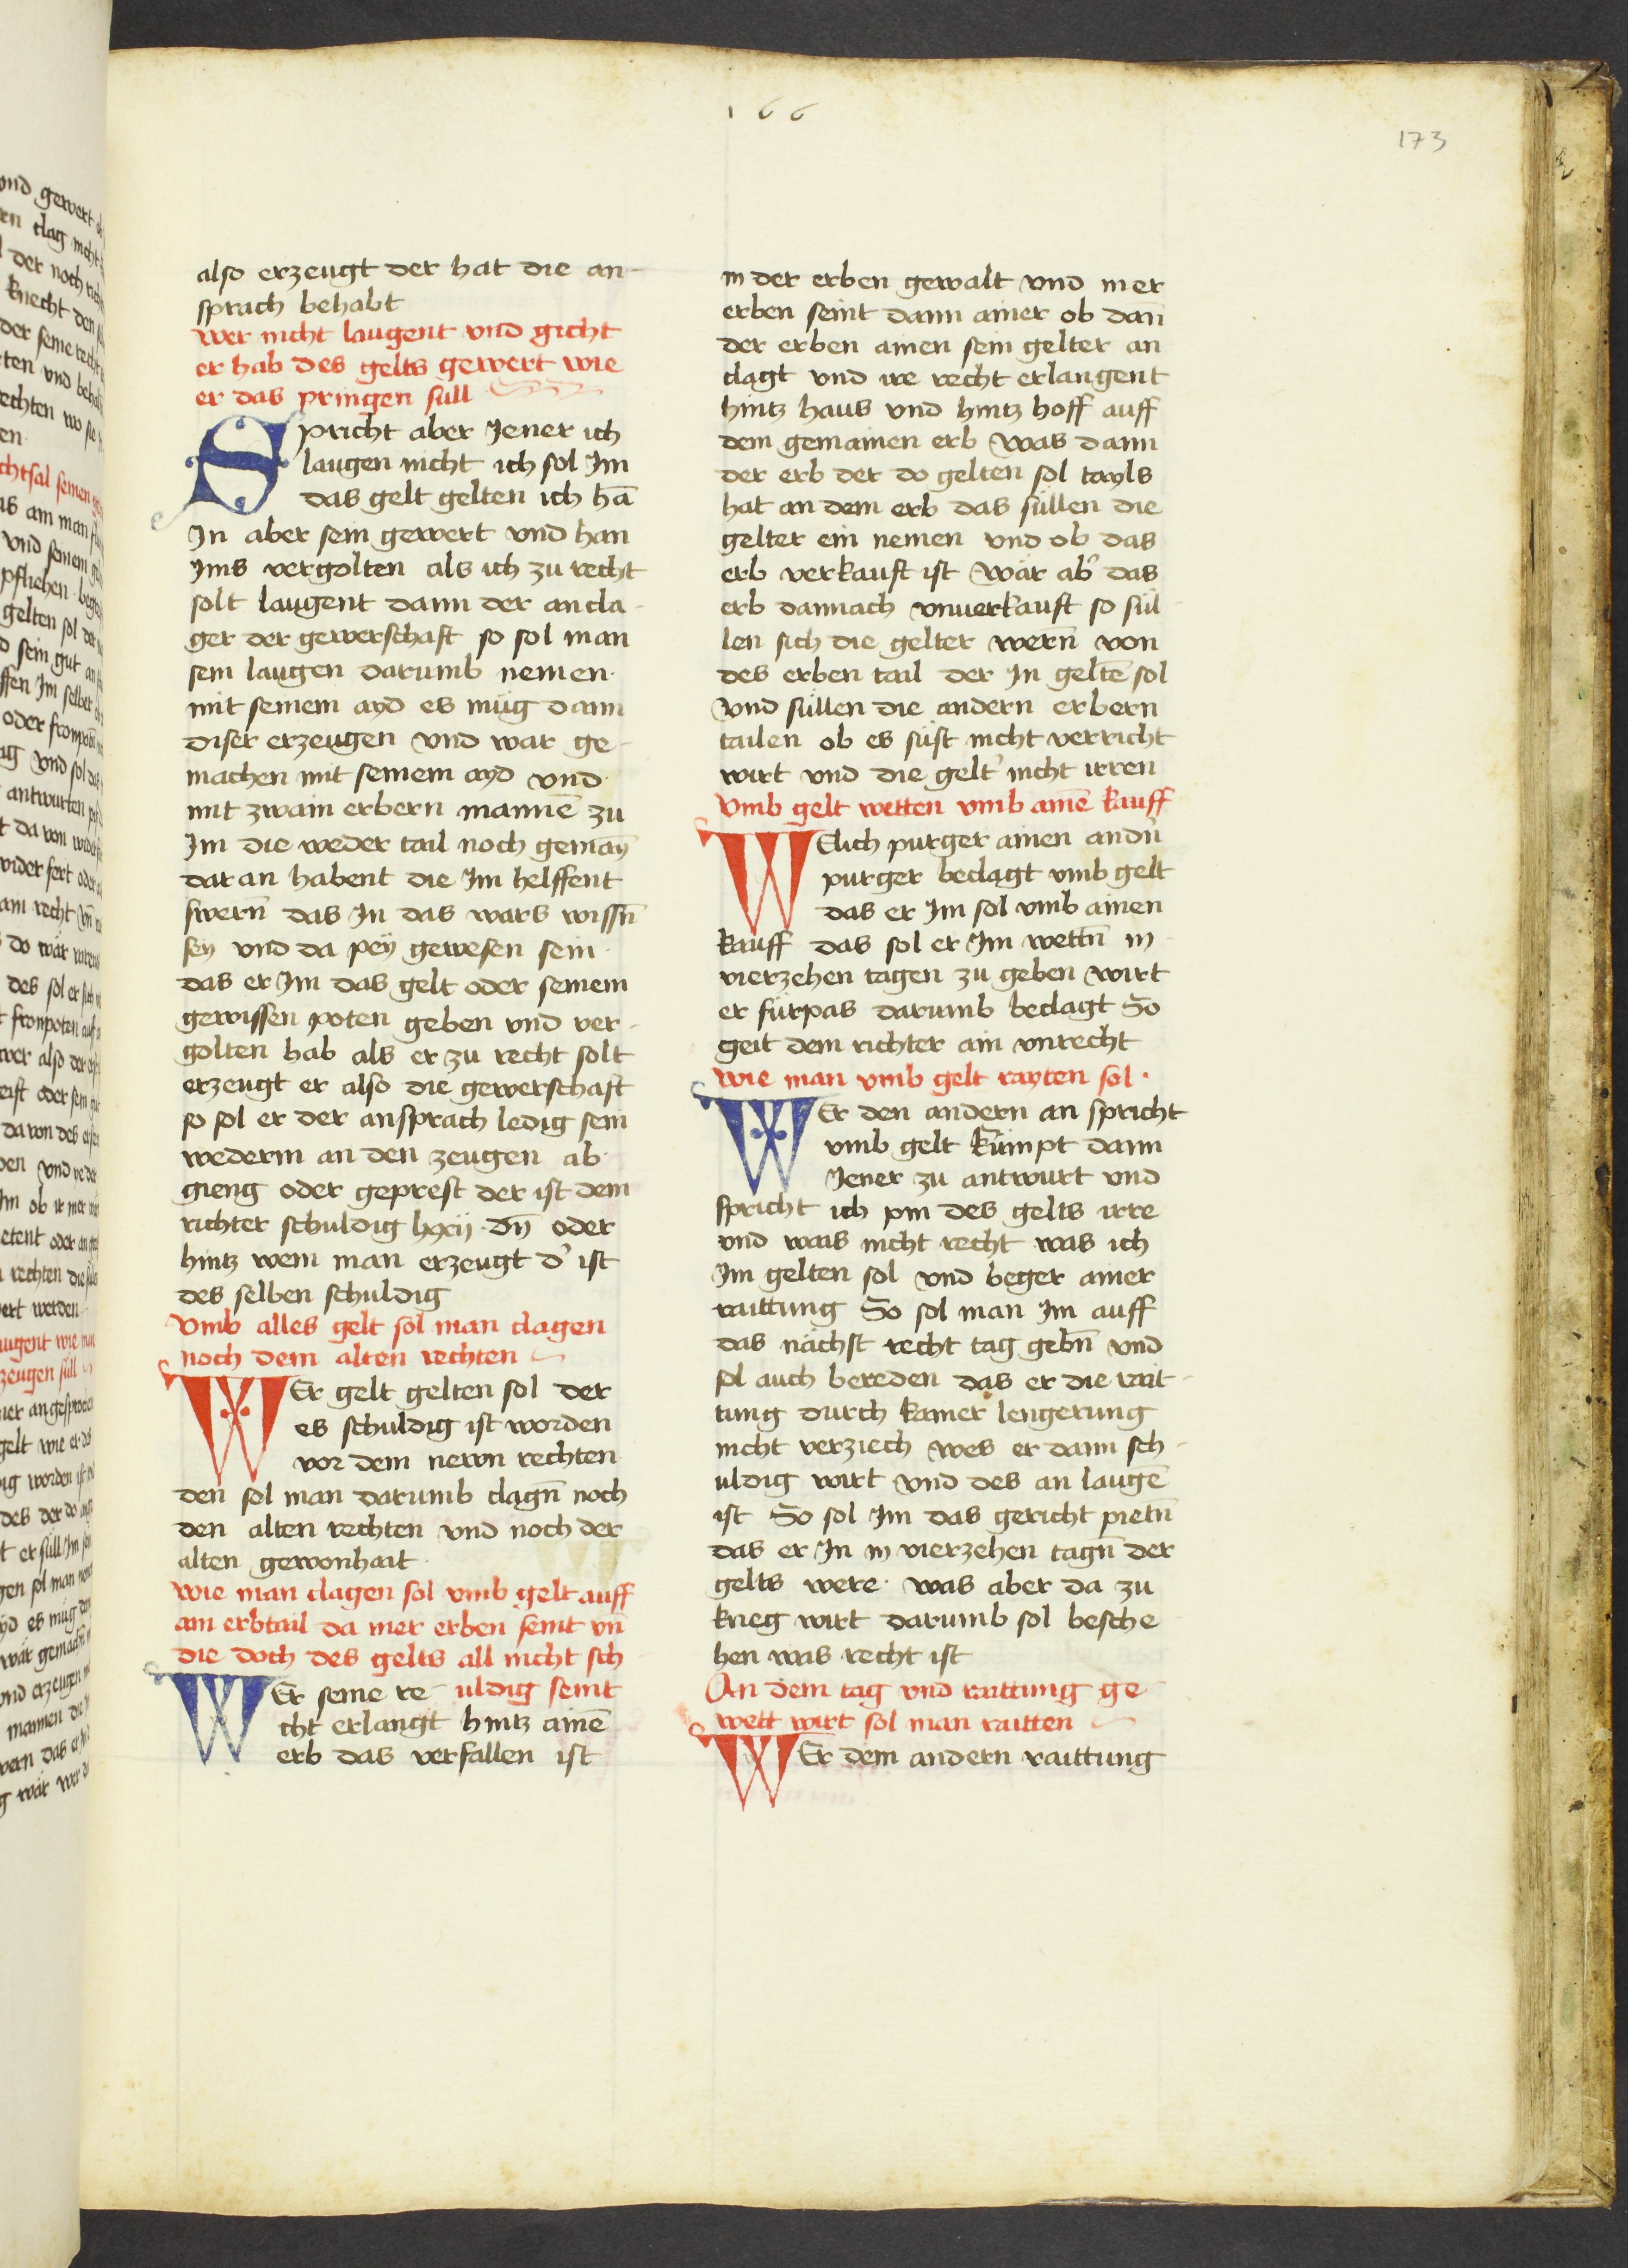 166
173
also erzeugt der hat die an-
sprach behabt
wer nicht laugent vnd gicht
er hab des gelts gewert wie
er das pringen süll
Spricht aber Jener ich
laugen nicht ich sol Im
das gelt gelten ich hā
In aber sein gewert vnd han
Jms vergolten als ich zu recht
solt laugent dann der ancla-
ger der gewerschaft so sol man
sein laugen darumb nemen·
mit seinem ayd es müg dann
diser erzeugen vnd war ge-
machen mit seinem ayd vnd·
mit zwain erbern mannē zu
Im die weder tail noch gemaȳ
dar an habent die Im helffent
swern̄ das In das wars wissn̄
sey vnd da peÿ gewesen sein·
das er Im das gelt oder seinem
gewissen poten geben vnd ver-
golten hab als er zu recht solt
erzeugt er also die gewerschaft
so sol er der ansprach ledig sein
wederm an den zeugen ab·
gieng oder geprest der ist dem
richter schuldig lxxij · dn̄ oder
hintz wem man erzeugt d' ist
des selben schuldig
Vmb alles gelt sol man clagen
noch dem alten rechten
WEr gelt gelten sol der
es schuldig ist worden
vor dem newn rechten
den sol man darumb clagn̄ noch
den alten rechten vnd noch der
alten gewonhait·
wie man clagen sol vmb gelt auff
ain erbtail da mer erben seint vn̄
die doch des gelts all nicht sch
WEr seine re- uldig seint
cht erlangt hintz ainē
erb das verfallen ist
in der erben gewalt vnd mer
erben seint dann ainer ob dan̄
der erben ainen sein gelter an
clagt vnd ire recht erlangent
hintz haus vnd hintz hoff auff
dem gemainen erb was dann
der erb der do gelten sol tayls
hat an dem erb das süllen die
gelter ein nemen vnd ob das
erb verkauft ist wär ab' das
erb dannach vnuerkauft so sül-
len sich die gelter wern̄ von
des erben tail der In geltē sol
Vnd süllen die andern erbern
tailen ob es süst nicht verricht
wirt vnd die gelt' nicht irren
Vmb gelt wetten vmb ainē kauff
WElich purger ainen andn̄
purger beclagt vmb gelt
das er Im sol vmb ainen
kauff das sol er Im wettn̄ in
vierzehen tagen zu geben wirt
er fürpas darumb beclagt So
geit dem richter ain vnrecht
wie man vmb gelt rayten sol·
WEr den andern an spricht
vmb gelt kümpt dann
Jener zu antwurt vnd
spricht ich pin des gelts irre
vnd wais nicht recht was ich
Im gelten sol vnd beger ainer
raittung So sol man Im auff
das nächst recht tag gebn̄ vnd
sol auch bereden das er die rait-
tung durch kainer lengerung
nicht verziech wes er dann sch-
uldig wirt vnd des an laugē
ist So sol Im das gericht pietn̄
das er In in vierzehen tagn̄ der
gelts were· was aber da zu
krieg wirt darumb sol besche
hen was recht ist
An dem tag vnd raittung ge
wett wirt sol man raitten
WEr dem andern raittung